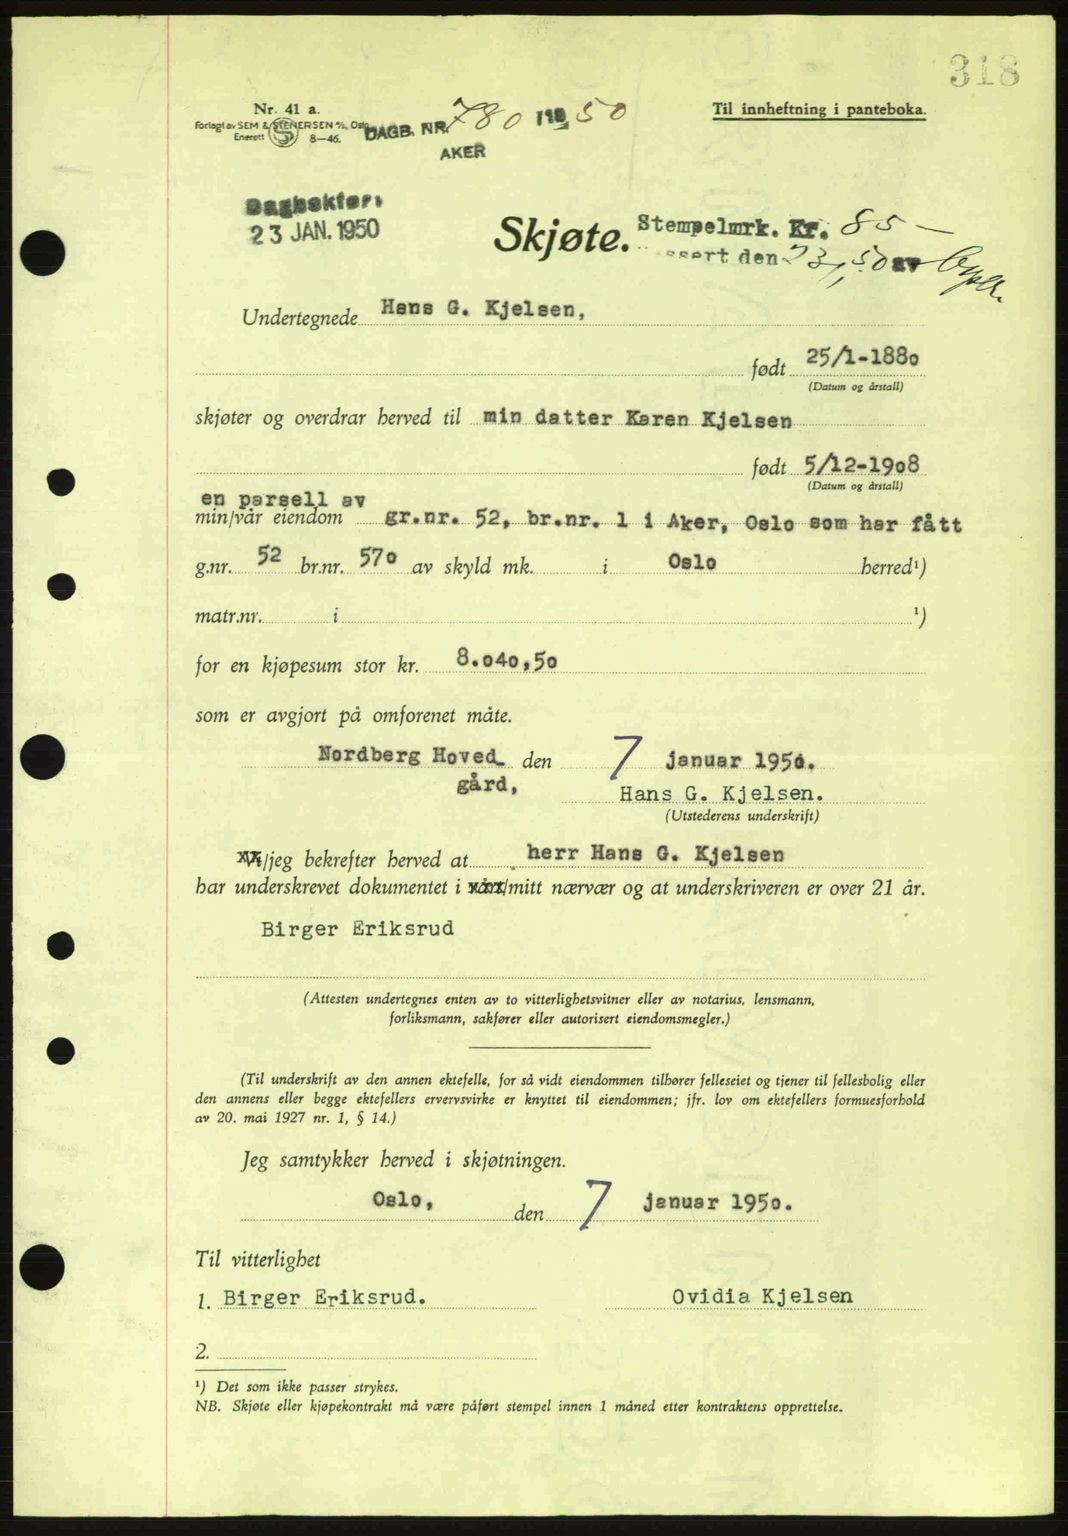 318
Nr. 41 a.
Forlagt av SEM & STENERSEN A/S, Oslo
Enerett S 8—46.
DAGB. NR. 780 /19 50
AKER
Til innheftning i panteboka.
Dagbokført
23 JAN. 1950
Skjøte.
Stempelmrk. Kr. 85 —
kassert den 23/1 50 av
Undertegnede Hans G. Kjelsen,
født 25/1-1880
(Datum og årstall)
skjøter og overdrar herved til min datter Karen Kjelsen
født 5/12-1908
(Datum og årstall)
en parsell av
min/vår eiendom gr.nr. 52, br.nr. 1 i Aker, Oslo som har fått
g.nr. 52 br.nr. 570 av skyld mk. i Oslo herred¹)
matr.nr. i ¹)
for en kjøpesum stor kr. 8.040,50
som er avgjort på omforenet måte.
Nordberg Hoved- den 7 januar 1950.
gård,
Hans G. Kjelsen.
(Utstederens underskrift)
Vi/jeg bekrefter herved at herr Hans G. Kjelsen
har underskrevet dokumentet i vårt/mitt nærvær og at underskriveren er over 21 år.
Birger Eriksrud
(Attesten undertegnes enten av to vitterlighetsvitner eller av notarius, lensmann,
forliksmann, sakfører eller autorisert eiendomsmegler.)
(Til underskrift av den annen ektefelle, for så vidt eiendommen tilhører felleseiet og tjener til fellesbolig eller
den annens eller begge ektefellers ervervsvirke er knyttet til eiendommen; jfr. lov om ektefellers formuesforhold
av 20. mai 1927 nr. 1, § 14.)
Jeg samtykker herved i skjøtningen.
Oslo, den 7 januar 1950.
Til vitterlighet
1. Birger Eriksrud.
Ovidia Kjelsen
2.
¹) Det som ikke passer strykes.
NB. Skjøte eller kjøpekontrakt må være påført stempel innen 1 måned etter kontraktens opprettelse.